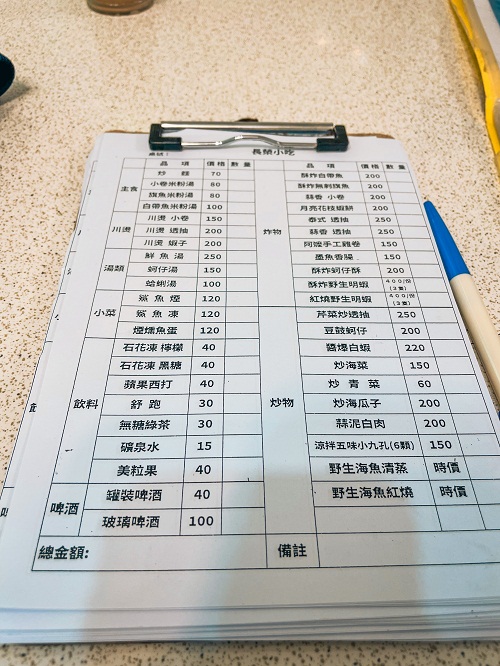 長榮小吃
桌號：
品 項 價格 數量 品 項 價格 數量
主食 炒 麵 70
小卷米粉湯 80
旗魚米粉湯 80
白帶魚米粉湯 100
川燙 川燙 小卷 150
川燙 透抽 200
川燙 蝦子 200
湯類 鮮 魚 湯 250
蚵仔湯 150
蛤蜊湯 100
小菜 鯊 魚 煙 120
鯊 魚 凍 120
煙燻魚蛋 120
飲料 石花凍 檸檬 40
石花凍 黑糖 40
蘋果西打 40
舒 跑 30
無糖綠茶 30
礦泉水 15
美粒果 40
啤酒 罐裝啤酒 40
玻璃啤酒 100
炸物 酥炸白帶魚 200
酥炸無刺旗魚 200
蒜香 小卷 200
月亮花枝蝦餅 200
泰式 透抽 250
蒜香 透抽 250
阿嬤手工雞卷 150
墨魚香腸 150
酥炸蚵仔酥 200
酥炸野生明蝦 400/份
(3隻)
紅燒野生明蝦 400/份
(3隻)
炒物 芹菜炒透抽 250
豆鼓蚵仔 200
醬爆白蝦 220
炒海菜 150
炒 青 菜 60
炒海瓜子 200
蒜泥白肉 200
涼拌五味小九孔(6顆) 150
野生海魚清蒸 時價
野生海魚紅燒 時價
總金額: 備註